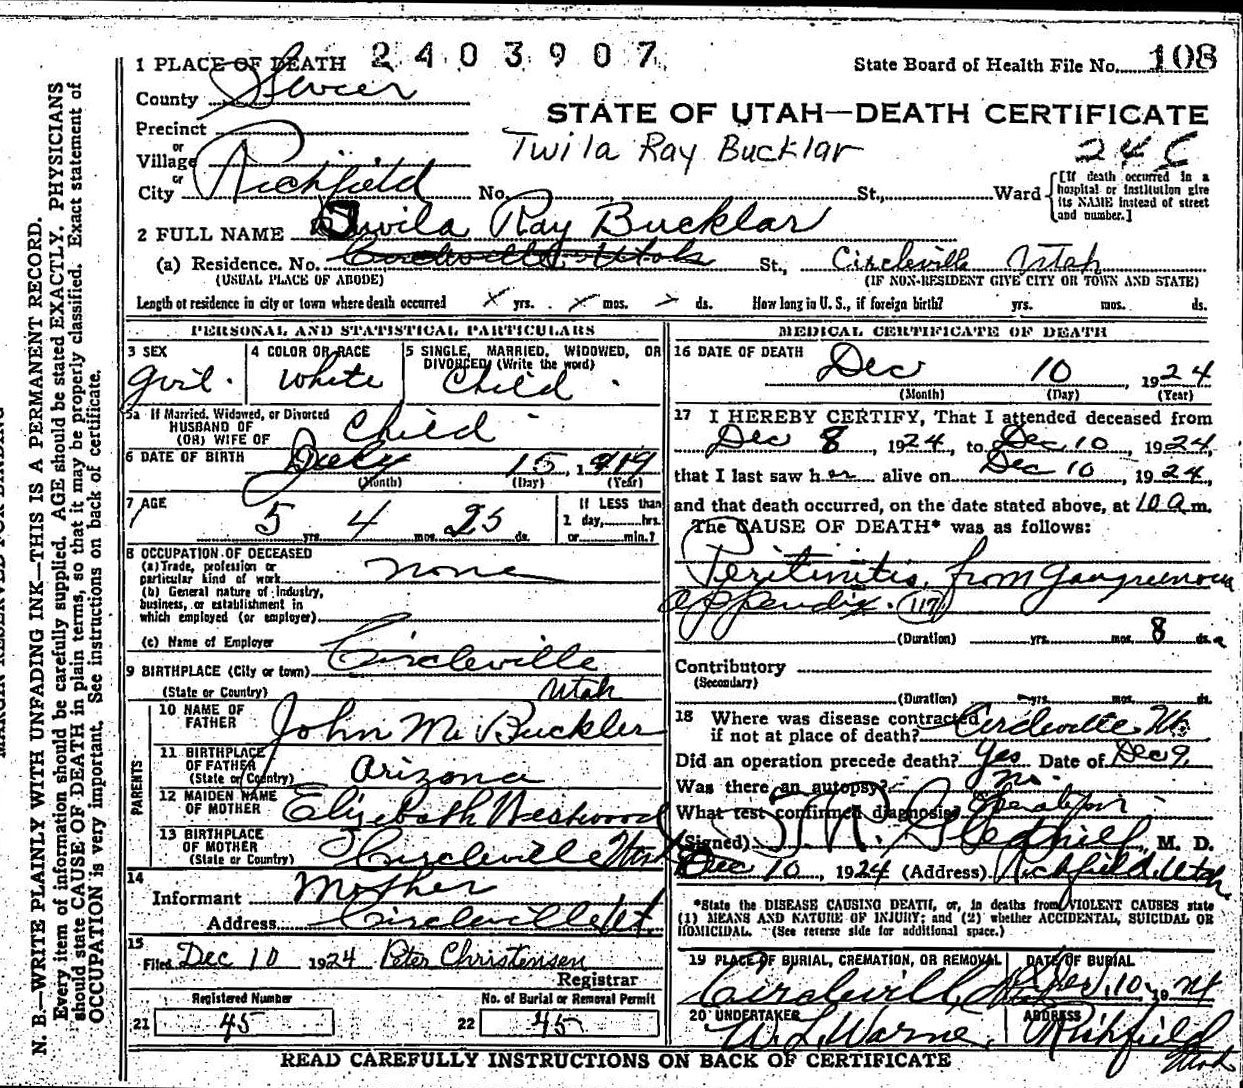 MARGIN RESERVED FOR BINDING
N. B.—WRITE PLAINLY WITH UNFADING INK—THIS IS A PERMANENT RECORD.
Every item of information should be carefully supplied. AGE should be stated EXACTLY. PHYSICIANS
should state CAUSE OF DEATH in plain terms, so that it may be properly classified. Exact statement of
OCCUPATION is very important. See instructions on back of certificate.
1 PLACE OF DEATH 2403907
State Board of Health File No. 108
County Sevier
STATE OF UTAH—DEATH CERTIFICATE
Precinct
or
Village
Twila Ray Bucklar
or
City Richfield No. St., Ward
[If death occurred in a
hospital or institution give
its NAME instead of street
and number.]
2 FULL NAME Twila Ray Bucklar
(a) Residence. No. Circleville Utah St., Circleville Utah
(USUAL PLACE OF ABODE) (IF NON-RESIDENT GIVE CITY OR TOWN AND STATE)
Length of residence in city or town where death occurred yrs. mos. ds. How long in U. S., if foreign birth? yrs. mos. ds.
PERSONAL AND STATISTICAL PARTICULARS
3 SEX
Girl.
4 COLOR OR RACE
White
5 SINGLE, MARRIED, WIDOWED, OR
DIVORCED (Write the word)
Child
5a If Married, Widowed, or Divorced
HUSBAND OF
(OR) WIFE OF
Child
6 DATE OF BIRTH July 15, 1919
(Month) (Day) (Year)
7 AGE
5 yrs. 4 mos. 25 ds.
If LESS than
1 day, hrs.
or min.?
8 OCCUPATION OF DECEASED
(a) Trade, profession or
particular kind of work none
(b) General nature of industry,
business, or establishment in
which employed (or employer)
(c) Name of Employer
9 BIRTHPLACE (City or town) Circleville
(State or Country) Utah
PARENTS
10 NAME OF
FATHER John M. Buckler
11 BIRTHPLACE
OF FATHER
(State or Country) Arizona
12 MAIDEN NAME
OF MOTHER Elizebath Westwood
13 BIRTHPLACE
OF MOTHER
(State or Country) Circleville Utah
14
Informant Mother
Address Circleville Ut.
15
Filed Dec 10 1924 Peter Christensen
Registrar
Registered Number
21 45
No. of Burial or Removal Permit
22 45
MEDICAL CERTIFICATE OF DEATH
16 DATE OF DEATH
Dec 10, 1924
(Month) (Day) (Year)
17 I HEREBY CERTIFY, That I attended deceased from
Dec 8, 1924, to Dec 10, 1924,
that I last saw her alive on Dec 10, 1924,
and that death occurred, on the date stated above, at 10 a.m.
The CAUSE OF DEATH* was as follows:
Peritinitis, from
appendix. (117)
(Duration) yrs. mos. 8 ds.
Contributory
(Secondary)
(Duration) yrs. mos. ds.
18 Where was disease contracted
if not at place of death? Circleville Ut.
Did an operation precede death? yes Date of Dec 9,
Was there an autopsy? no.
What test confirmed diagnosis? Operation
(Signed) M. D.
Dec 10, 1924 (Address) Richfield, Utah
*State the DISEASE CAUSING DEATH, or, in deaths from VIOLENT CAUSES state
(1) MEANS AND NATURE OF INJURY; and (2) whether ACCIDENTAL, SUICIDAL OR
HOMICIDAL. (See reverse side for additional space.)
19 PLACE OF BURIAL, CREMATION, OR REMOVAL DATE OF BURIAL
Circleville Dec. 10, 1924
20 UNDERTAKER ADDRESS
W. L. Warne, Richfield
Utah
READ CAREFULLY INSTRUCTIONS ON BACK OF CERTIFICATE